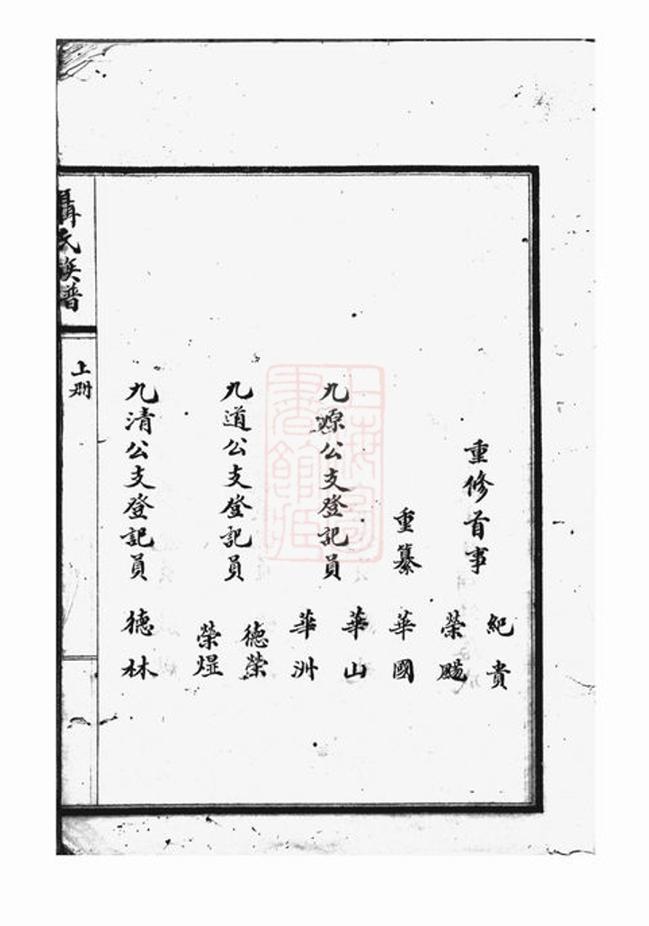 重修首事
紀貴
榮賜
重纂
華國
九源公支登記員
華山
華洲
九道公支登記員
德榮
榮煋
九清公支登記員
德林
聶氏族譜
上冊
上海圖書館藏